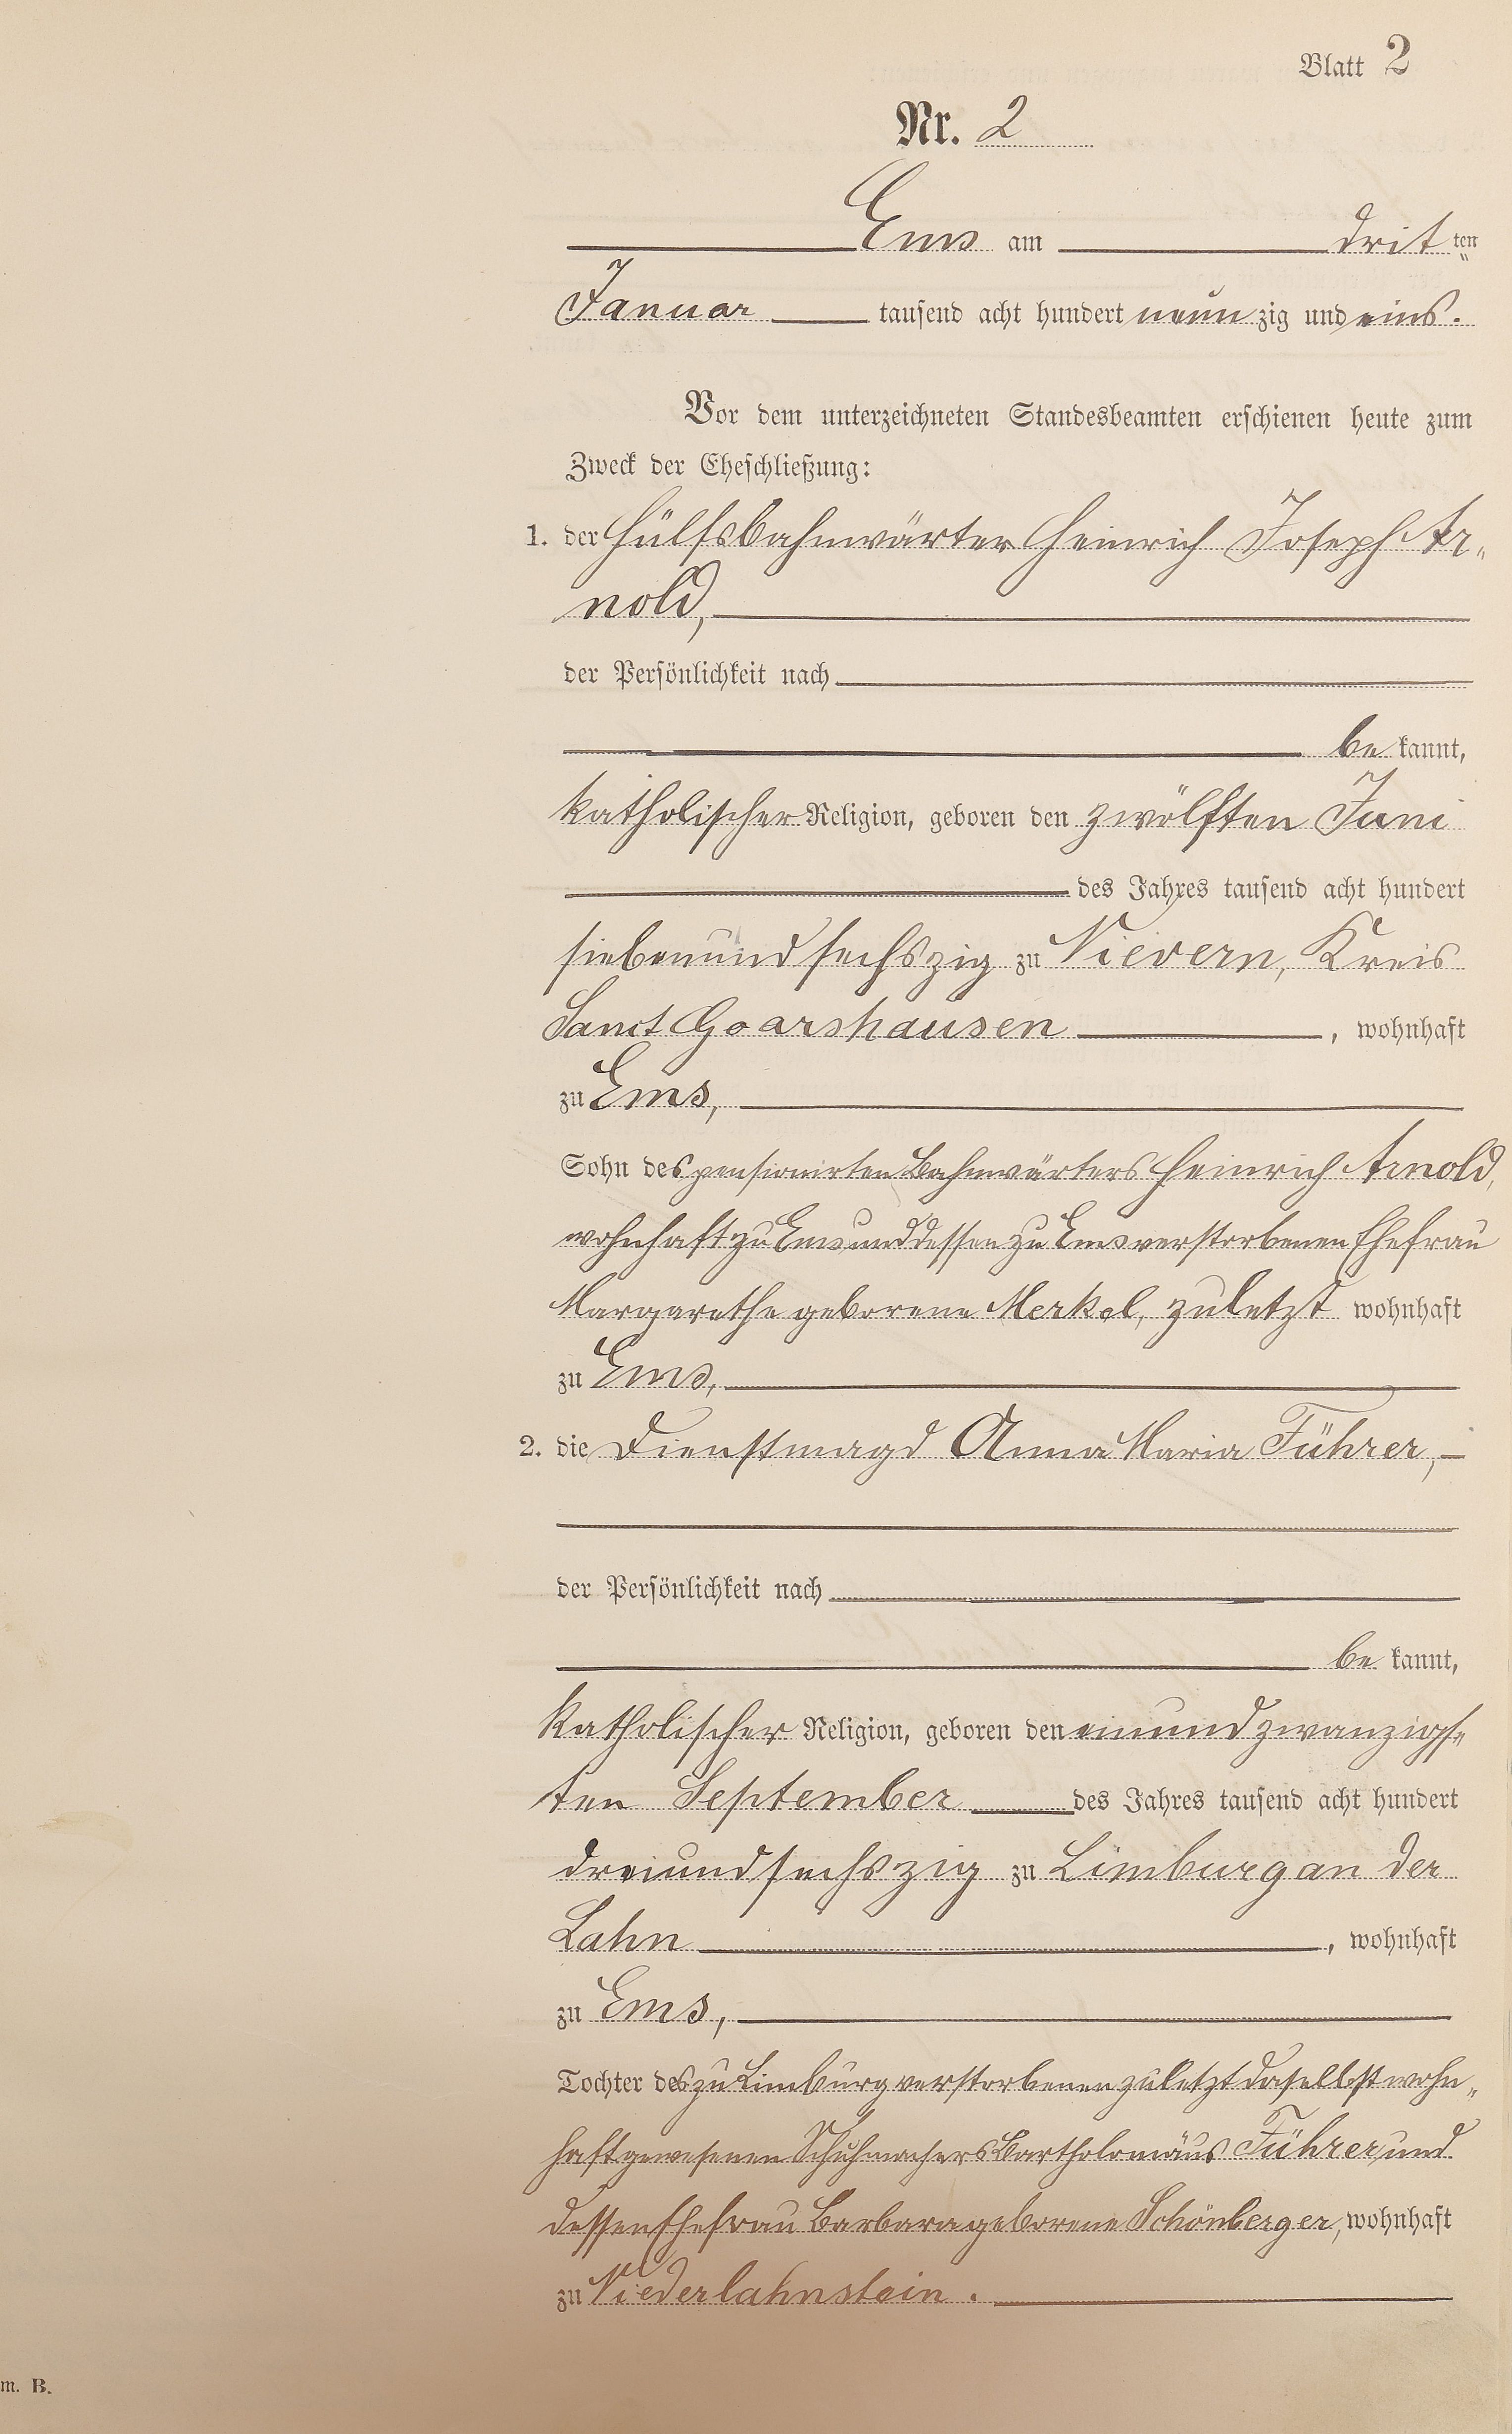 Blatt 2
Nr. 2
Ems am drit ten
Januar tausend acht hundert neun zig und eins.
Vor dem unterzeichneten Standesbeamten erschienen heute zum
Zweck der Eheschließung:
1. der Hülfsbahnwärter Heinrich Joseph Ar-
nold,
der Persönlichkeit nach
be kannt,
katholischer Religion, geboren den zwölften Juni
des Jahres tausend acht hundert
siebenundsechszig zu Nievern, Kreis
Sanct Goarshausen, wohnhaft
zu Ems,
Sohn des pensionirten Bahnwärters Heinrich Arnold,
wohnhaft zu Ems und dessen zu Ems verstorbenen Ehefrau
Margarethe geborene Merkel, zuletzt wohnhaft
zu Ems,
2. die Dienstmagd Anna Maria Führer,
der Persönlichkeit nach
be kannt,
katholischer Religion, geboren den einundzwanzigs-
ten September des Jahres tausend acht hundert
dreiundsechszig zu Limburg an der
Lahn, wohnhaft
zu Ems,
Tochter des zu Limburg verstorbenen zuletzt daselbst wohn-
haft gewesenen Schuhmachers Bartholomäus Führer und
dessen Ehefrau Barbara geborene Schönberger, wohnhaft
zu Niederlahnstein.
m. B.